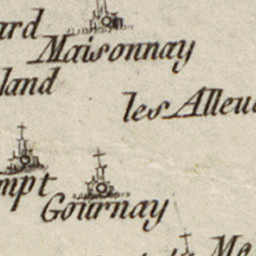 ard
Maisonnay
land
les Alleu
mpt
Gournay
Me